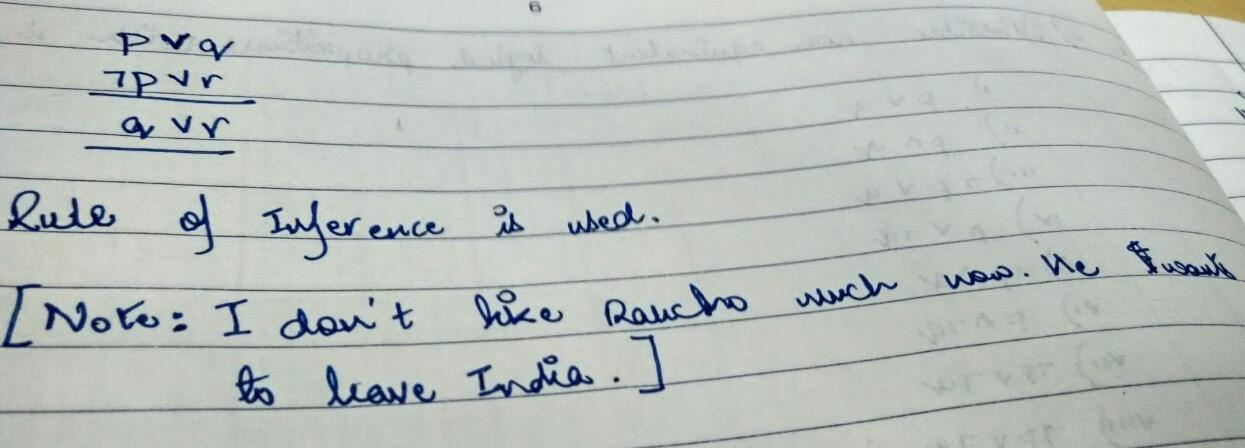 6
p ∨ q
¬p ∨ r
q ∨ r
Rule of Inference is used.
[Note: I don't like Rancho much now. He wants
to leave India.]